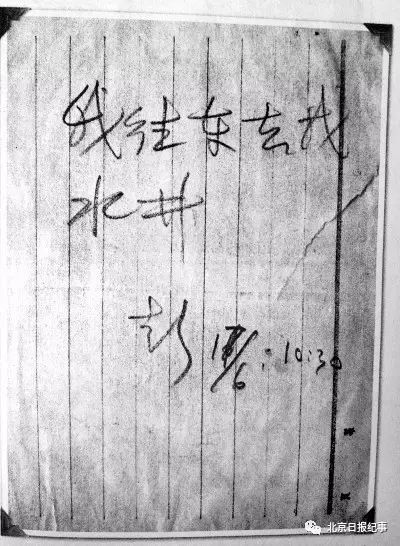 我往东去找
水井
彭 17/6:10:30
北京日报纪事